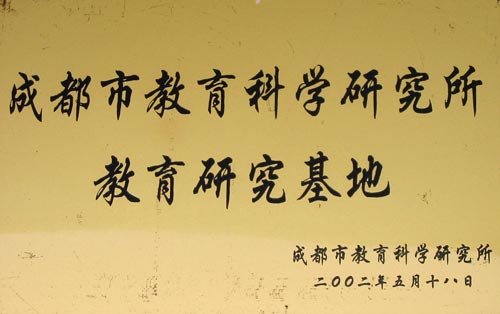 成都市教育科学研究所
教育研究基地
成都市教育科学研究所
二〇〇二年五月十八日